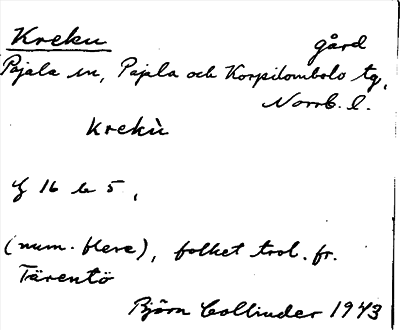 Kreku gård
Pajala sn, Pajala och Korpilombolo tg,
Norrb. l.
krekù
16 5,
(num. flera), folket trol. fr.
Tärentö
Björn Collinder 1943